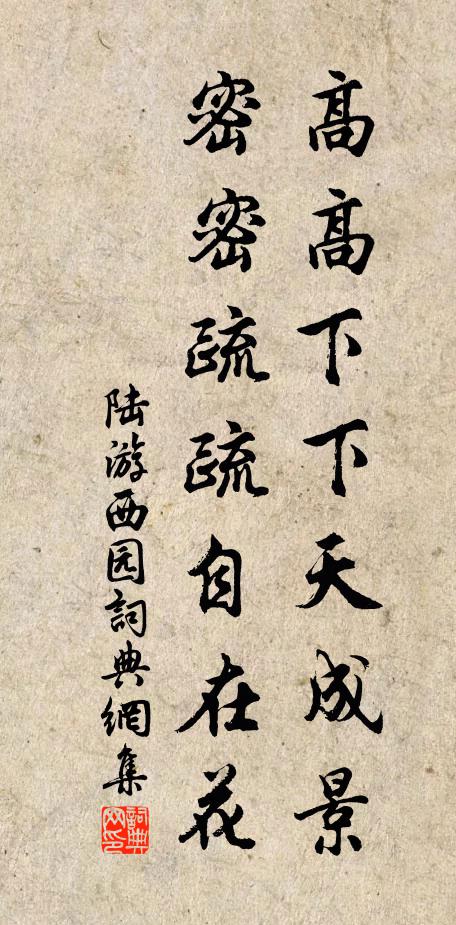 高高下下天成景
密密疏疏自在花
陆游西园詞典網集
詞典網印